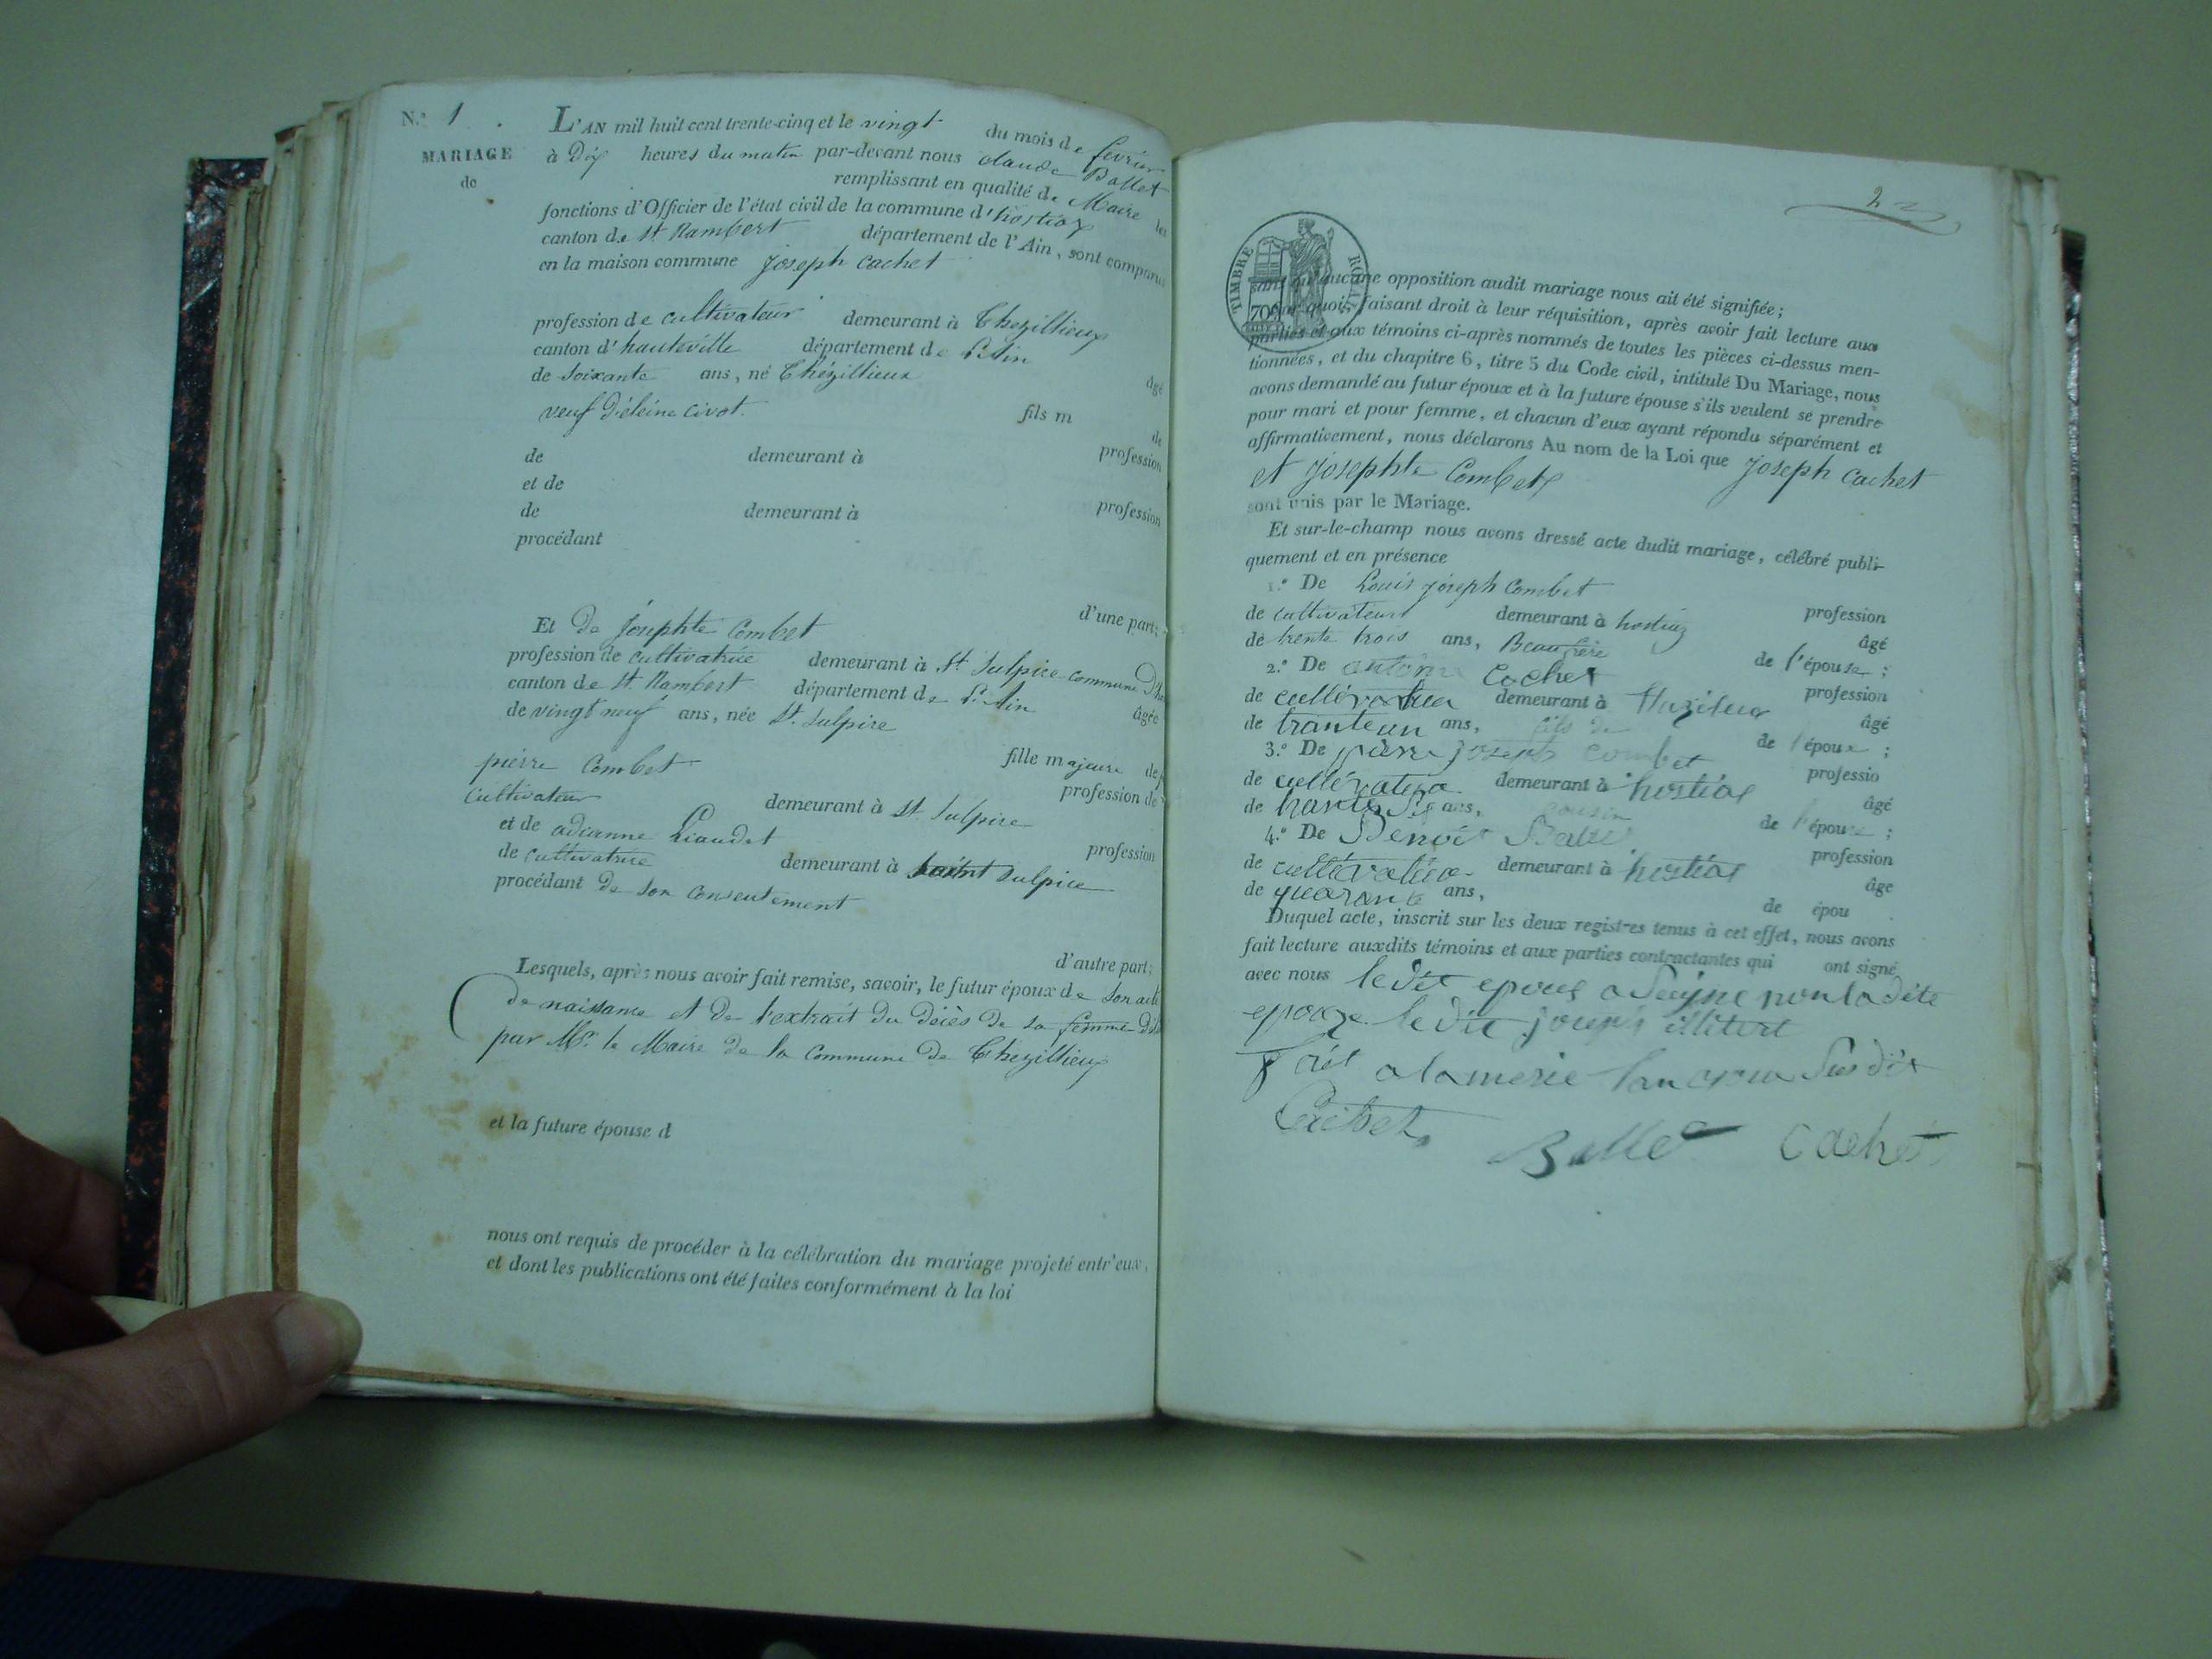 N.º 1
MARIAGE
de
L'AN mil huit cent trente-cinq et le vingt du mois de fevrier
à Dix heures du matin par-devant nous claude Ballet
remplissant en qualité de Maire les
fonctions d'Officier de l'état civil de la commune d'hostiaz
canton de St Rambert département de l'Ain, sont comparus
en la maison commune joseph cachet
profession de cultivateur demeurant à Thezillieux
canton d'hauteville département de L'Ain
âgé
de soixante ans, né Thézillieux
veuf d'éleine civot. fils m de
profession
de demeurant à
et de
profession
de demeurant à
procédant
d'une part;
Et de josephte Combet
profession de cultivatrice demeurant à St Sulpice commune
canton de St. Rambert département de L'Ain
âgée
de vingt neuf ans, née St. Sulpice
fille majeure de
pierre Combet profession de
cultivateur demeurant à St. Sulpice
et de adrianne Liaudet
profession
de cultivatrice demeurant à saint Sulpice
procédant de son consentement
d'autre part;
Lesquels, après nous avoir fait remise, savoir, le futur époux de son acte
de naissance et de l'extrait du décès de sa femme
par Mr. le Maire de la Commune de Thezillieux
et la future épouse d
nous ont requis de procéder à la célébration du mariage projeté entr'eux,
et dont les publications ont été faites conformément à la loi
2
TIMBRE ROYAL
70
sans qu'aucune opposition audit mariage nous ait été signifiée;
Sur quoi, faisant droit à leur réquisition, après avoir fait lecture aux
parties et aux témoins ci-après nommés de toutes les pièces ci-dessus men-
tionnées, et du chapitre 6, titre 5 du Code civil, intitulé Du Mariage, nous
avons demandé au futur époux et à la future épouse s'ils veulent se prendre
pour mari et pour femme, et chacun d'eux ayant répondu séparément et
affirmativement, nous déclarons Au nom de la Loi que joseph cachet
et josephte Combet
sont unis par le Mariage.
Et sur-le-champ nous avons dressé acte dudit mariage, célébré publi-
quement et en présence
1.º De Louis joseph combet
profession
de cultivateur demeurant à hostiaz
âgé
de trente trois ans, Beaufrère de l'épouse;
2.º De antoine Cachet
profession
de cultivateur demeurant à
âgé
de ans, fils de l'époux;
3.º De pierre joseph combet
profession
de demeurant à hostiaz
âgé
de ans, cousin de l'épouse;
4.º De Benoit
profession
de demeurant à hostiaz
âgé
de quarante ans, de épou
Duquel acte, inscrit sur les deux registres tenus à cet effet, nous avons
fait lecture auxdits témoins et aux parties contractantes qui ont signé
avec nous ledit epoux a seigne non la dite
epouze ledit joseph illiteré
fait a la merie susdit
Cachet Ballet Cachet